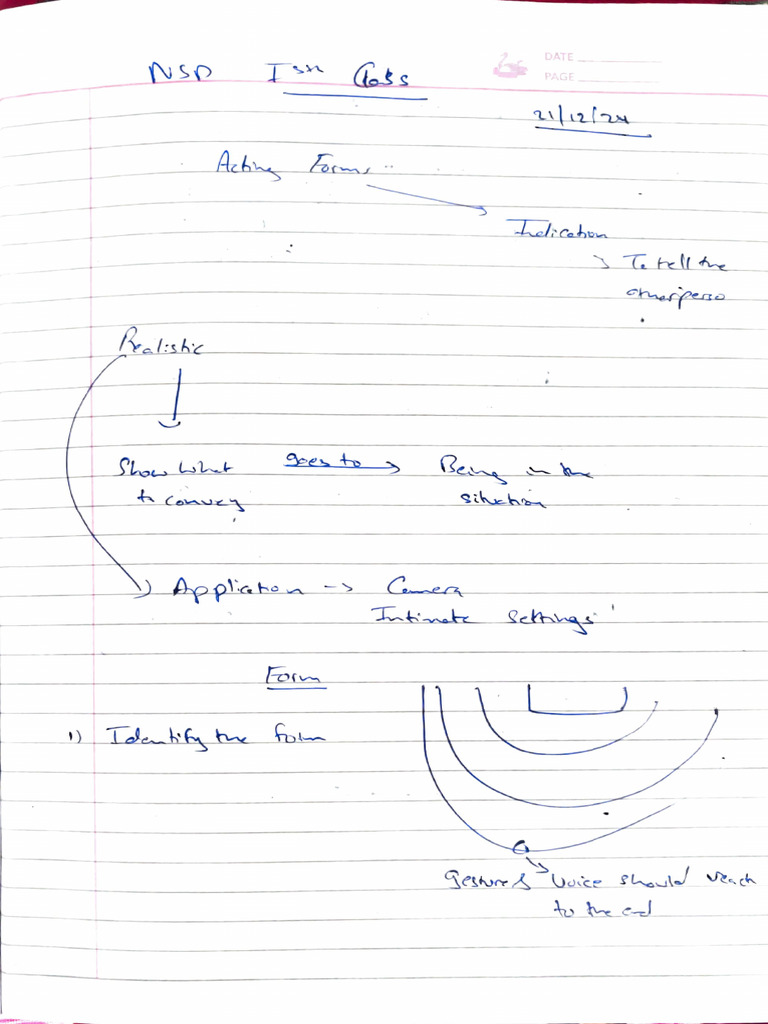 DATE
PAGE
NSD Ist Class
21/12/24
Acting Forms
Indication
To tell the
other perso
Realistic
Show what goes to Being in the
to convey situation
Application -> Camera
Intimate settings
Form
1) Identify the form
Gesture & Voice should reach
to the end